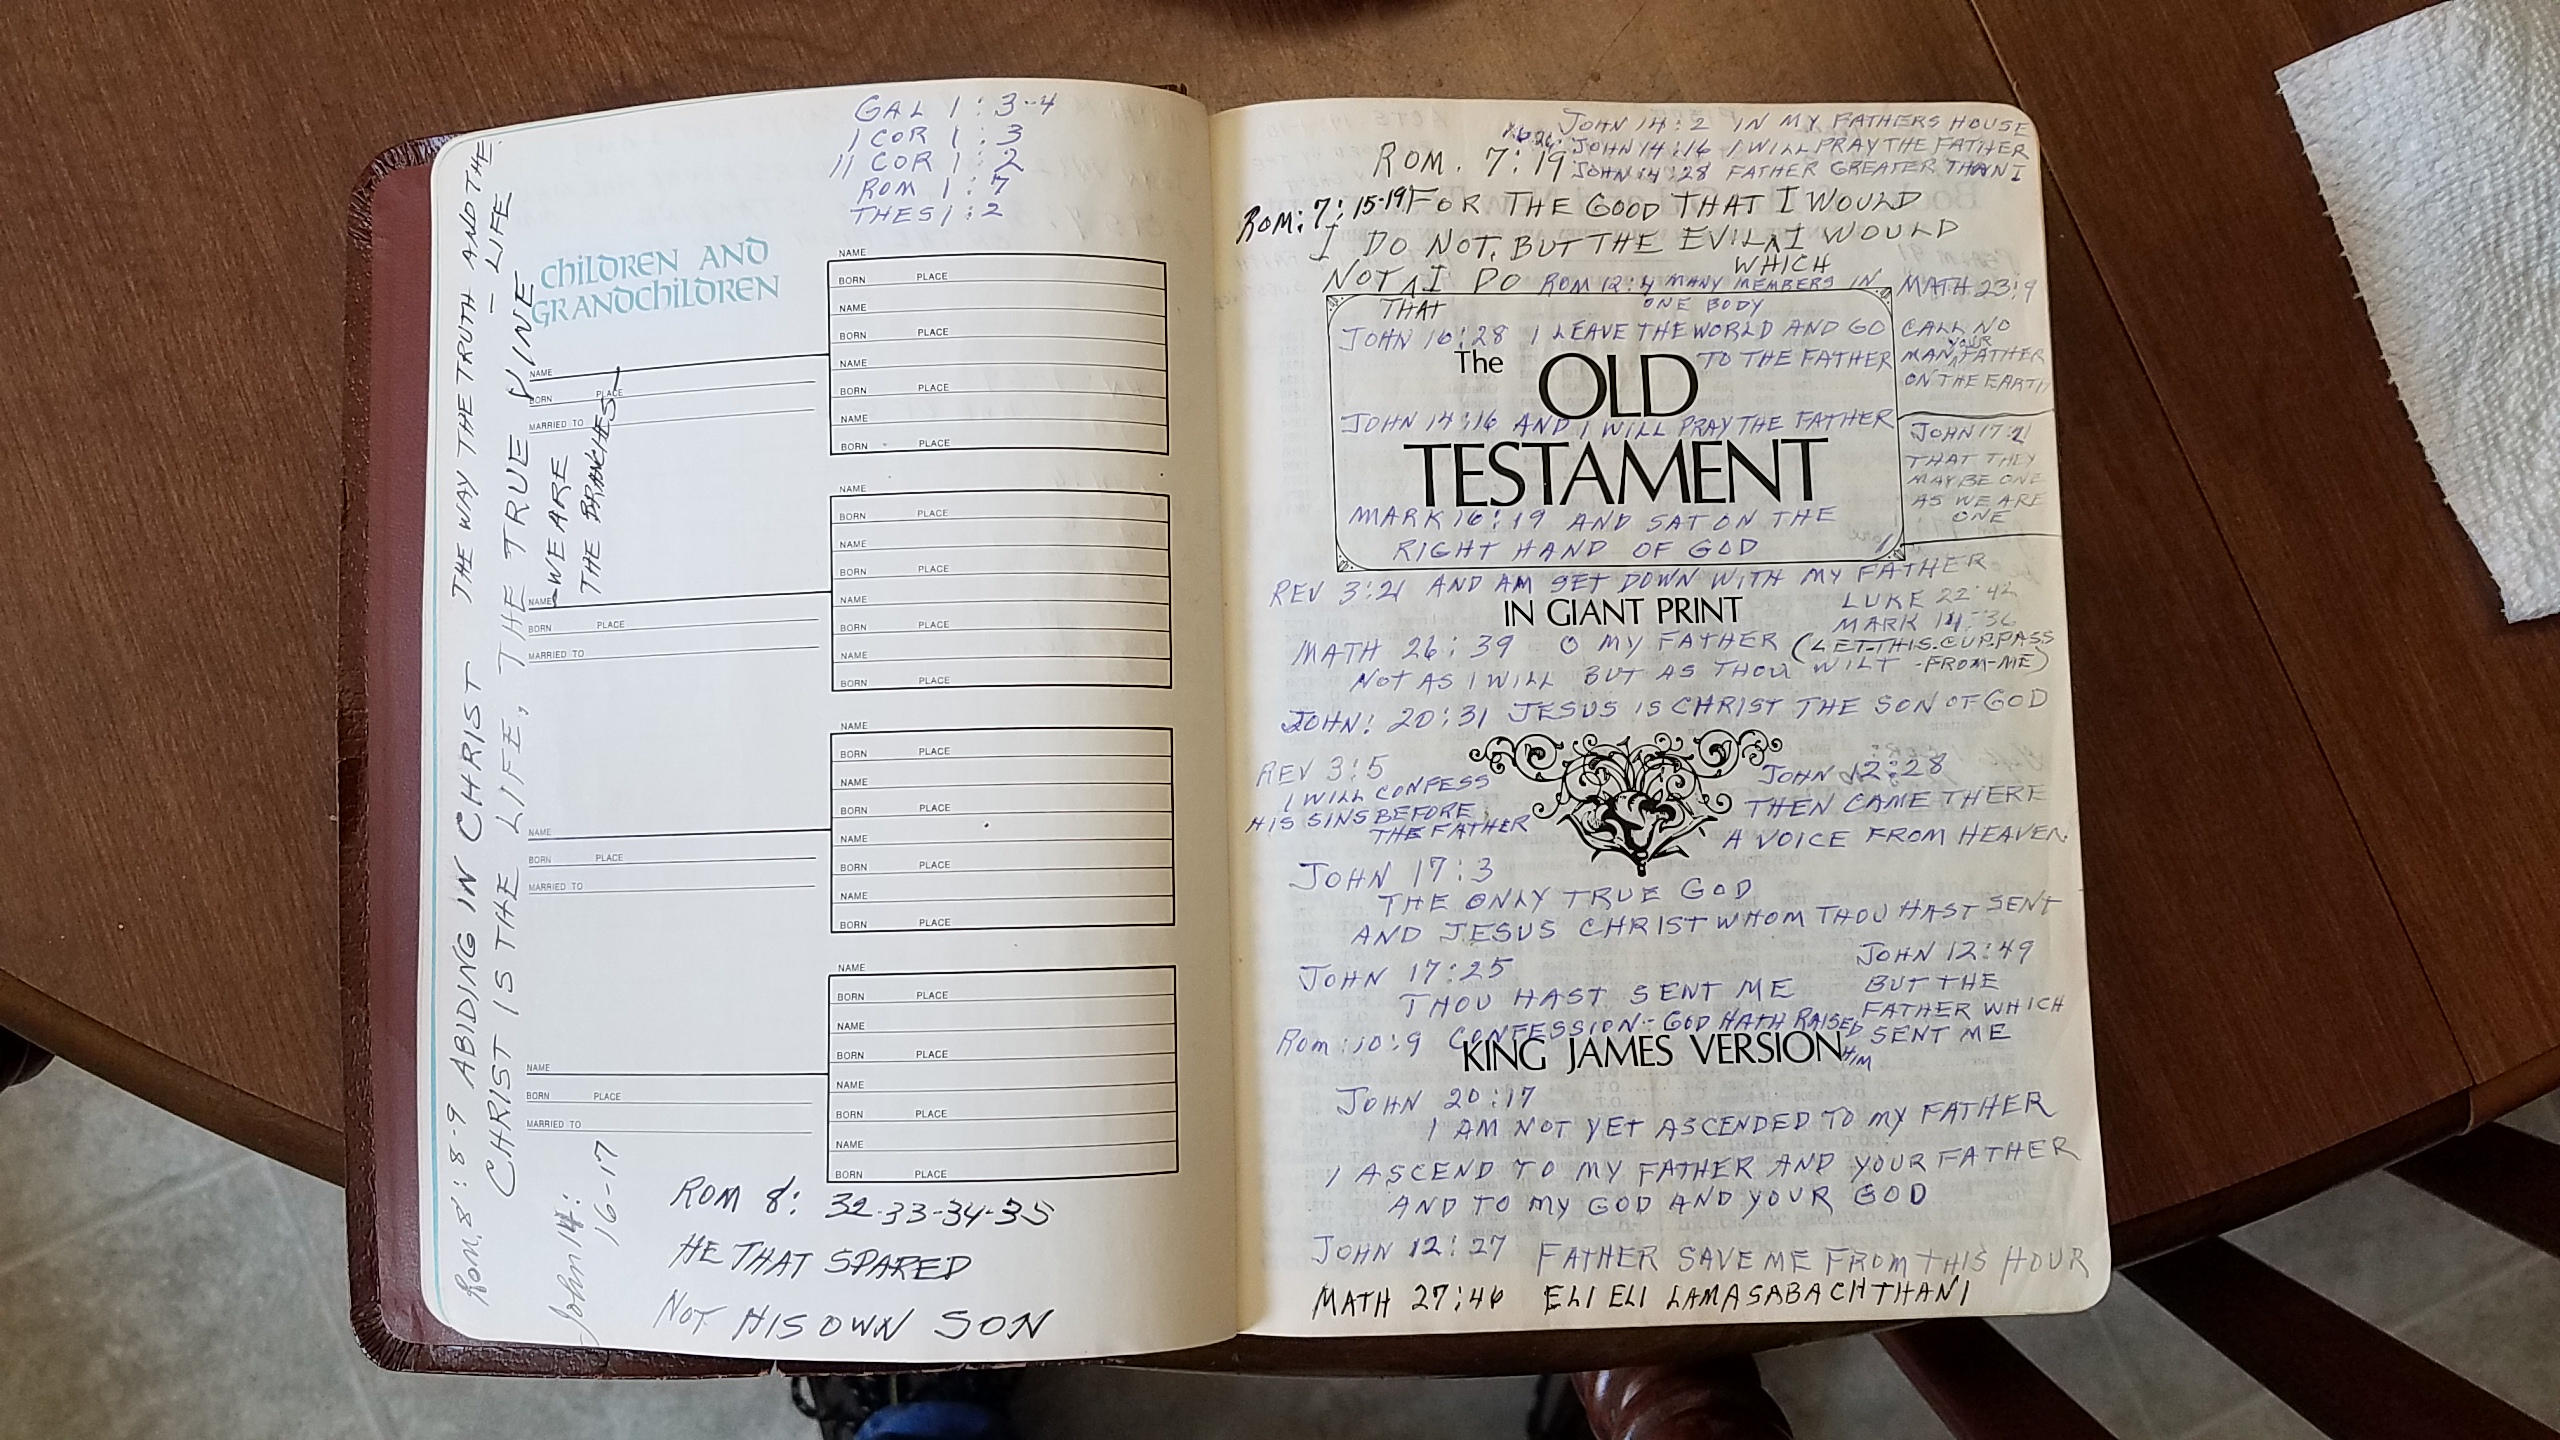 GAL 1 : 3-4
1 COR 1 : 3
11 COR 1 : 2
ROM 1 : 7
THES 1 : 2
CHILDREN AND
GRANDCHILDREN
NAME
BORN PLACE
MARRIED TO
NAME
BORN PLACE
MARRIED TO
NAME
BORN PLACE
MARRIED TO
NAME
BORN PLACE
MARRIED TO
NAME
BORN PLACE
NAME
BORN PLACE
NAME
BORN PLACE
NAME
BORN PLACE
NAME
BORN PLACE
NAME
BORN PLACE
NAME
BORN PLACE
NAME
BORN PLACE
NAME
BORN PLACE
NAME
BORN PLACE
NAME
BORN PLACE
NAME
BORN PLACE
NAME
BORN PLACE
NAME
BORN PLACE
NAME
BORN PLACE
NAME
BORN PLACE
ROM. 8 : 8-9 ABIDING IN CHRIST THE WAY THE TRUTH AND THE
- LIFE
CHRIST IS THE LIFE, THE TRUE VINE
-WE ARE
THE BRANCHES
John 14:
16-17
ROM 8: 32-33-34-35
HE THAT SPARED
NOT HIS OWN SON
JOHN 14 : 2 IN MY FATHERS HOUSE
JOHN 14 : 16 I WILL PRAY THE FATHER
JOHN 14 : 28 FATHER GREATER THAN I
ROM. 7 : 19
ROM: 7: 15-19 FOR THE GOOD THAT I WOULD
I DO NOT, BUT THE EVIL ^ I WOULD
WHICH
NOT ^ I DO
THAT
ROM 12:4 MANY MEMBERS IN
ONE BODY
MATH 23:9
CALL NO
MAN YOUR FATHER
ON THE EARTH
JOHN 16:28 I LEAVE THE WORLD AND GO
TO THE FATHER
The OLD
JOHN 14:16 AND I WILL PRAY THE FATHER
TESTAMENT
JOHN 17:21
THAT THEY
MAY BE ONE
AS WE ARE
ONE
MARK 16:19 AND SAT ON THE
RIGHT HAND OF GOD
REV 3:21 AND AM SET DOWN WITH MY FATHER
IN GIANT PRINT
LUKE 22:42
MARK 14:36
MATH 26:39 O MY FATHER (LET-THIS-CUP-PASS
-FROM-ME)
NOT AS I WILL BUT AS THOU WILT
JOHN: 20:31 JESUS IS CHRIST THE SON OF GOD
REV 3:5
I WILL CONFESS
HIS SINS BEFORE
THE FATHER
JOHN 12:28
THEN CAME THERE
A VOICE FROM HEAVEN
JOHN 17:3
THE ONLY TRUE GOD
AND JESUS CHRIST WHOM THOU HAST SENT
JOHN 17:25
THOU HAST SENT ME
JOHN 12:49
BUT THE
FATHER WHICH
SENT ME
ROM: 10:9 CONFESSION-- GOD HATH RAISED
HIM
KING JAMES VERSION
JOHN 20:17
I AM NOT YET ASCENDED TO MY FATHER
I ASCEND TO MY FATHER AND YOUR FATHER
AND TO MY GOD AND YOUR GOD
JOHN 12:27 FATHER SAVE ME FROM THIS HOUR
MATH 27:46 ELI ELI LAMASABACHTHANI